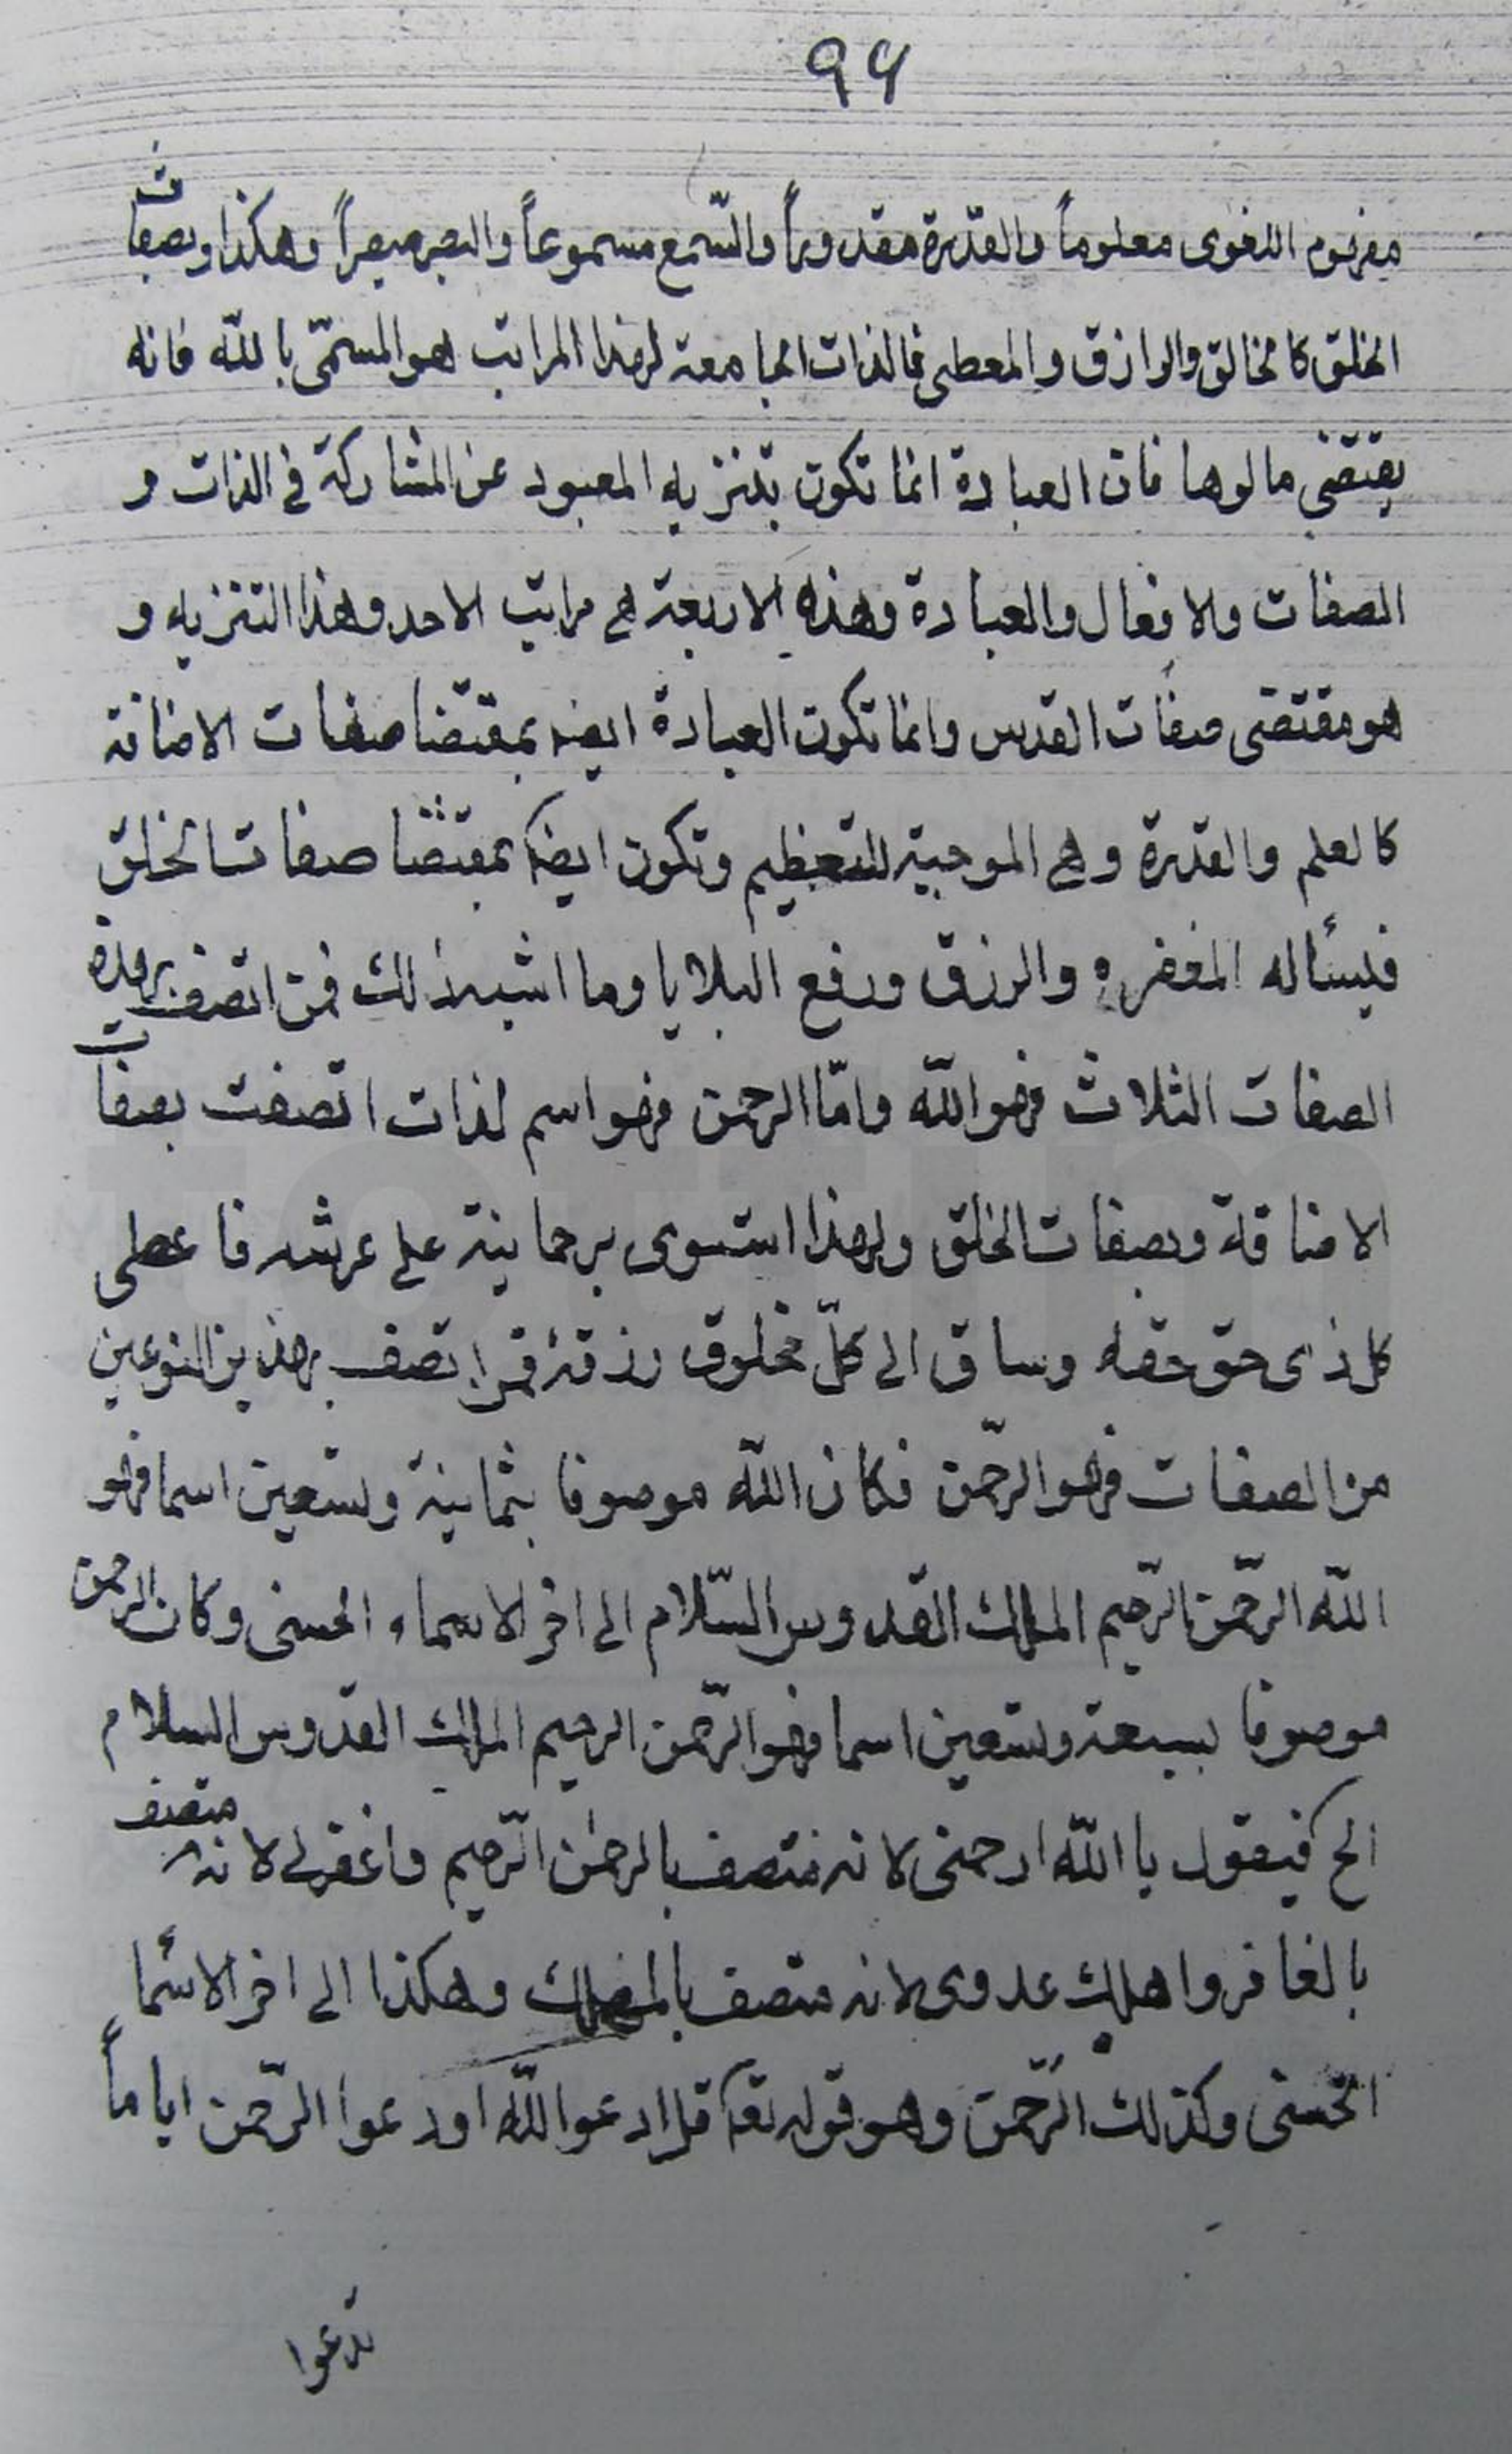 ٩٤
مفهوم اللغوى معلوماً والقدرة مقدوراً والسّمع مسموعاً والبصر مبصراً وهكذا وبصفات
الخلق كالخالق والرازق والمعطى فالذات الجامعة لهذا المراتب هو المسمّى باللّه فانه
يقتضى مالوها فان العبادة انما تكون بتنزيه المعبود عن المشاركة فى الذات و
الصفات والافعال والعبادة وهذه الاربعة هى مراتب الاحد وهذا التنزيه و
هو مقتضى صفات القدس وانما تكون العبادة ايضا بمقتضا صفات الاضافة
كالعلم والقدرة وهى الموجبة للتعظيم وتكون ايضا بمقتضا صفات الخلق
فيسأله المغفره والرزق ودفع البلايا وما اشبه ذلك فمن اتصف بهذه
الصفات الثلاث فهو اللّه وامّا الرحمن فهو اسم لذات اتصفت بصفات
الاضافة وبصفات الخلق ولهذا استوى برحمانية على عرشه فاعطى
كل ذى حق حقه وساق الى كلّ مخلوق رزقه فمن اتصف بهذين النوعين
من الصفات فهو الرحّمن فكان اللّه موصوفا بثمانية وتسعين اسما فهو
اللّه الرحّمن الرّحيم الملك القدوس السّلام الى اخر الاسماء الحسنى وكان الرحمن
موصوفا بسبعة وتسعين اسما فهو الرّحمن الرحيم الملك القدوس السلام
الخ فيقول يا اللّه ارحمنى لانه متصف بالرحمن الرّحيم واغفر لى لانه متصف
بالغافر واهلك عدوى لانه متصف بالمهلك وهكذا الى اخر الاسٔما
الحسنى وكذلك الرّحمن وهو قوله تعا قل ادعوا اللّه او ادعوا الرّحمن اياماً
تدعوا